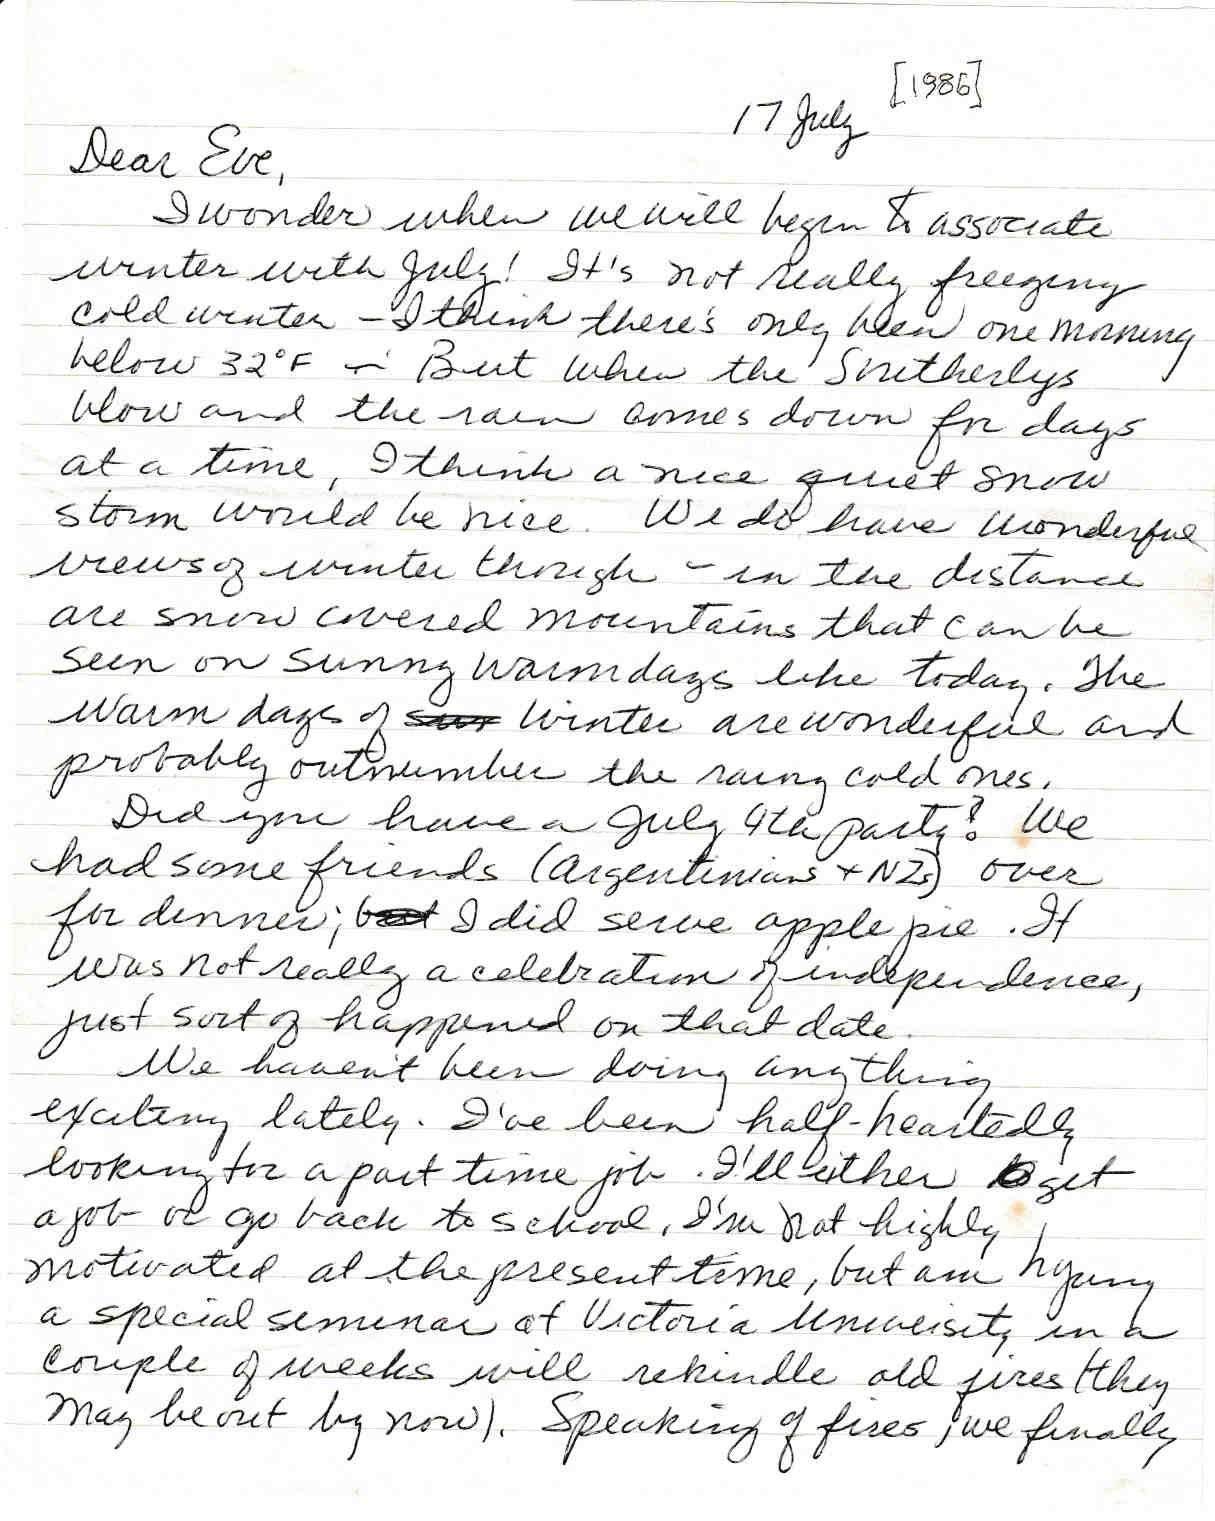 [1986]
17 July
Dear Eve,
I wonder when we will begin to associate
winter with July! It's not really freezing
cold winter - I think there's only been one morning
below 32°F - But when the Southerlys
blow and the rain comes down for days
at a time, I think a nice quiet snow
storm would be nice. We do have wonderful
views of winter though - in the distance
are snow covered mountains that can be
seen on sunny warm days like today. The
warm days of winter are wonderful and
probably outnumber the rainy cold ones.
Did you have a July 4th party? We
had some friends (Argentinians + NZs) over
for dinner; but I did serve apple pie. It
was not really a celebration of independence,
just sort of happened on that date.
We haven't been doing anything
exciting lately. I've been half-heartedly
looking for a part time job. I'll either get
a job or go back to school. I'm not highly
motivated at the present time, but am hoping
a special seminar at Victoria University in a
couple of weeks will rekindle old fires (they
may be out by now). Speaking of fires, we finally